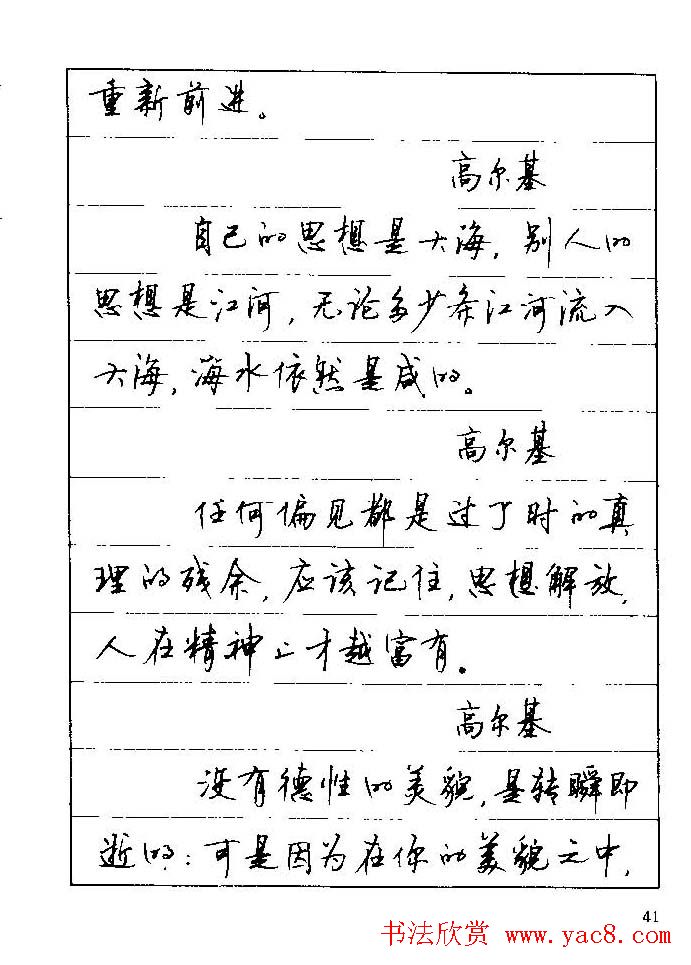 重新前进。
高尔基
自己的思想是大海，别人的
思想是江河，无论多少条江河流入
大海，海水依然是咸的。
高尔基
任何偏见都是过了时的真
理的残余，应该记住，思想解放，
人在精神上才越富有。
高尔基
没有德性的美貌，是转瞬即
逝的；可是因为在你的美貌之中，
41
书法欣赏 www.yac8.com